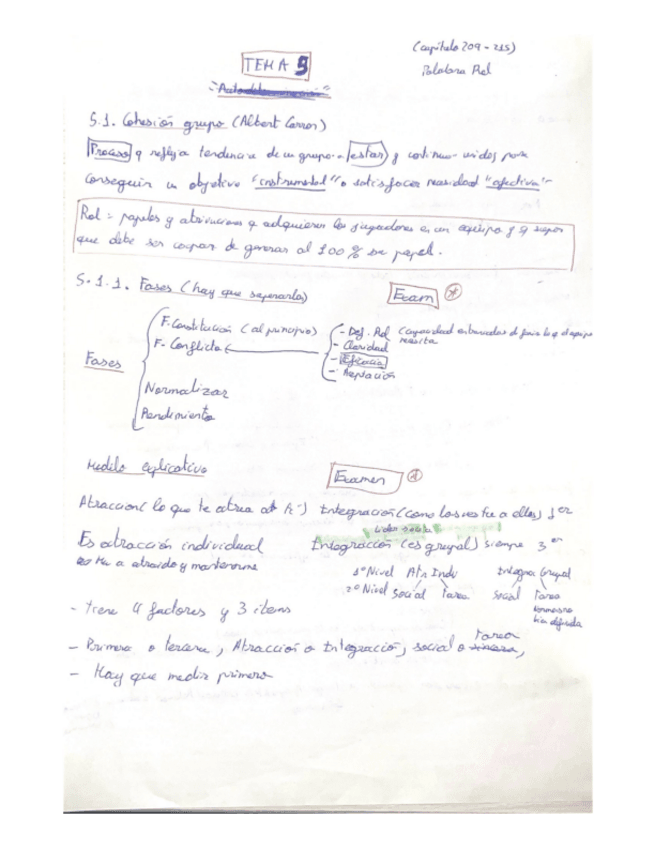 (Capítulo 209-215)
Palabra Rol
TEMA 5
5.1. Cohesión grupo (Albert Carron)
Proceso q refleja tendencia de un grupo a estar y continuar unidos para
conseguir un objetivo "instrumental" o satisfacer necesidad "afectiva"
Rol = papeles y atribuciones q adquieren los jugadores en un equipo y q
que debe ser capaz de generar al 100% su papel.
5.1.1. Fases (hay que saperarla)
Examen
F. Constitución (al principio)
F. Conflicto
- Def. Rol (capacidad
- Claridad
- Eficacia
- Aceptación
Fases
Normalizar
Rendimiento
Modelo explicativo
Examen
Atracción (lo que te atrea a ti) Integración (como los ves tu a ellos) 1er
lider social
Es atracción individual Integración (es grupal) siempre 3er
tu a atraido y mantenerme
1º Nivel Atr. Indv Integra. Grupal
2º Nivel Social Tarea Social Tarea
- tiene 4 factores y 3 items
- Primera o tercera, Atracción o Integración, social o Tarea,
- Hay que medir primero